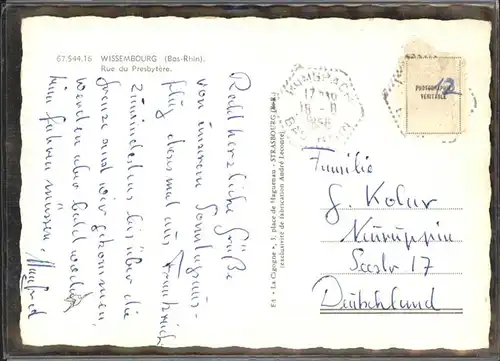 67.544.16 WISSEMBOURG (Bas-Rhin).
Rue du Presbytère.
Recht herzliche Grüße
von unserem Sonntagsaus-
flug diesmal aus Frankreich
Zumindestens bis über die
Grenze sind wir gekommen,
werden aber bald wieder
heim fahren müssen. Manfred
Ed. « La Cigogne », 3, place de Haguenau - STRASBOURG (B.-R.)
(exclusivité de fabrication André Leconte)
17
18 - 8
1958
PHOTOGRAPHIE
VÉRITABLE
12
Familie
G. Kolar
Neuruppin
Seestr 17
Deutschland